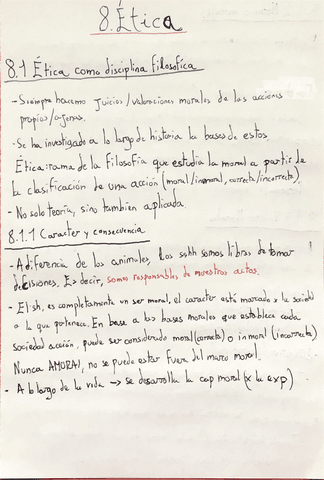 8. Ética
8.1 Ética como disciplina filosófica
- Siempre hacemos juicios/valoraciones morales de las acciones
propias/ajenas.
- Se ha investigado a lo largo de historia la bases de estos.
Ética: rama de la filosofía que estudia la moral a partir de
la clasificación de una acción (moral/inmoral, correcta/incorrecta).
- No solo teoría, sino también aplicada.
8.1.1 Caracter y consecuencia
- A diferencia de los animales, los sshh somos libres de tomar
decisiones. Es decir, somos responsables de nuestros actos.
- El sh, es completamente un ser moral, el caracter está marcado x la sociedad
a la que pertenece. En base a las bases morales que establece cada
sociedad acción, puede ser considerado moral (correcta) o inmoral (incorrecta)
Nunca AMORAL, no se puede estar fuera del marco moral.
- A lo largo de la vida → se desarrolla la cap moral (x la exp)